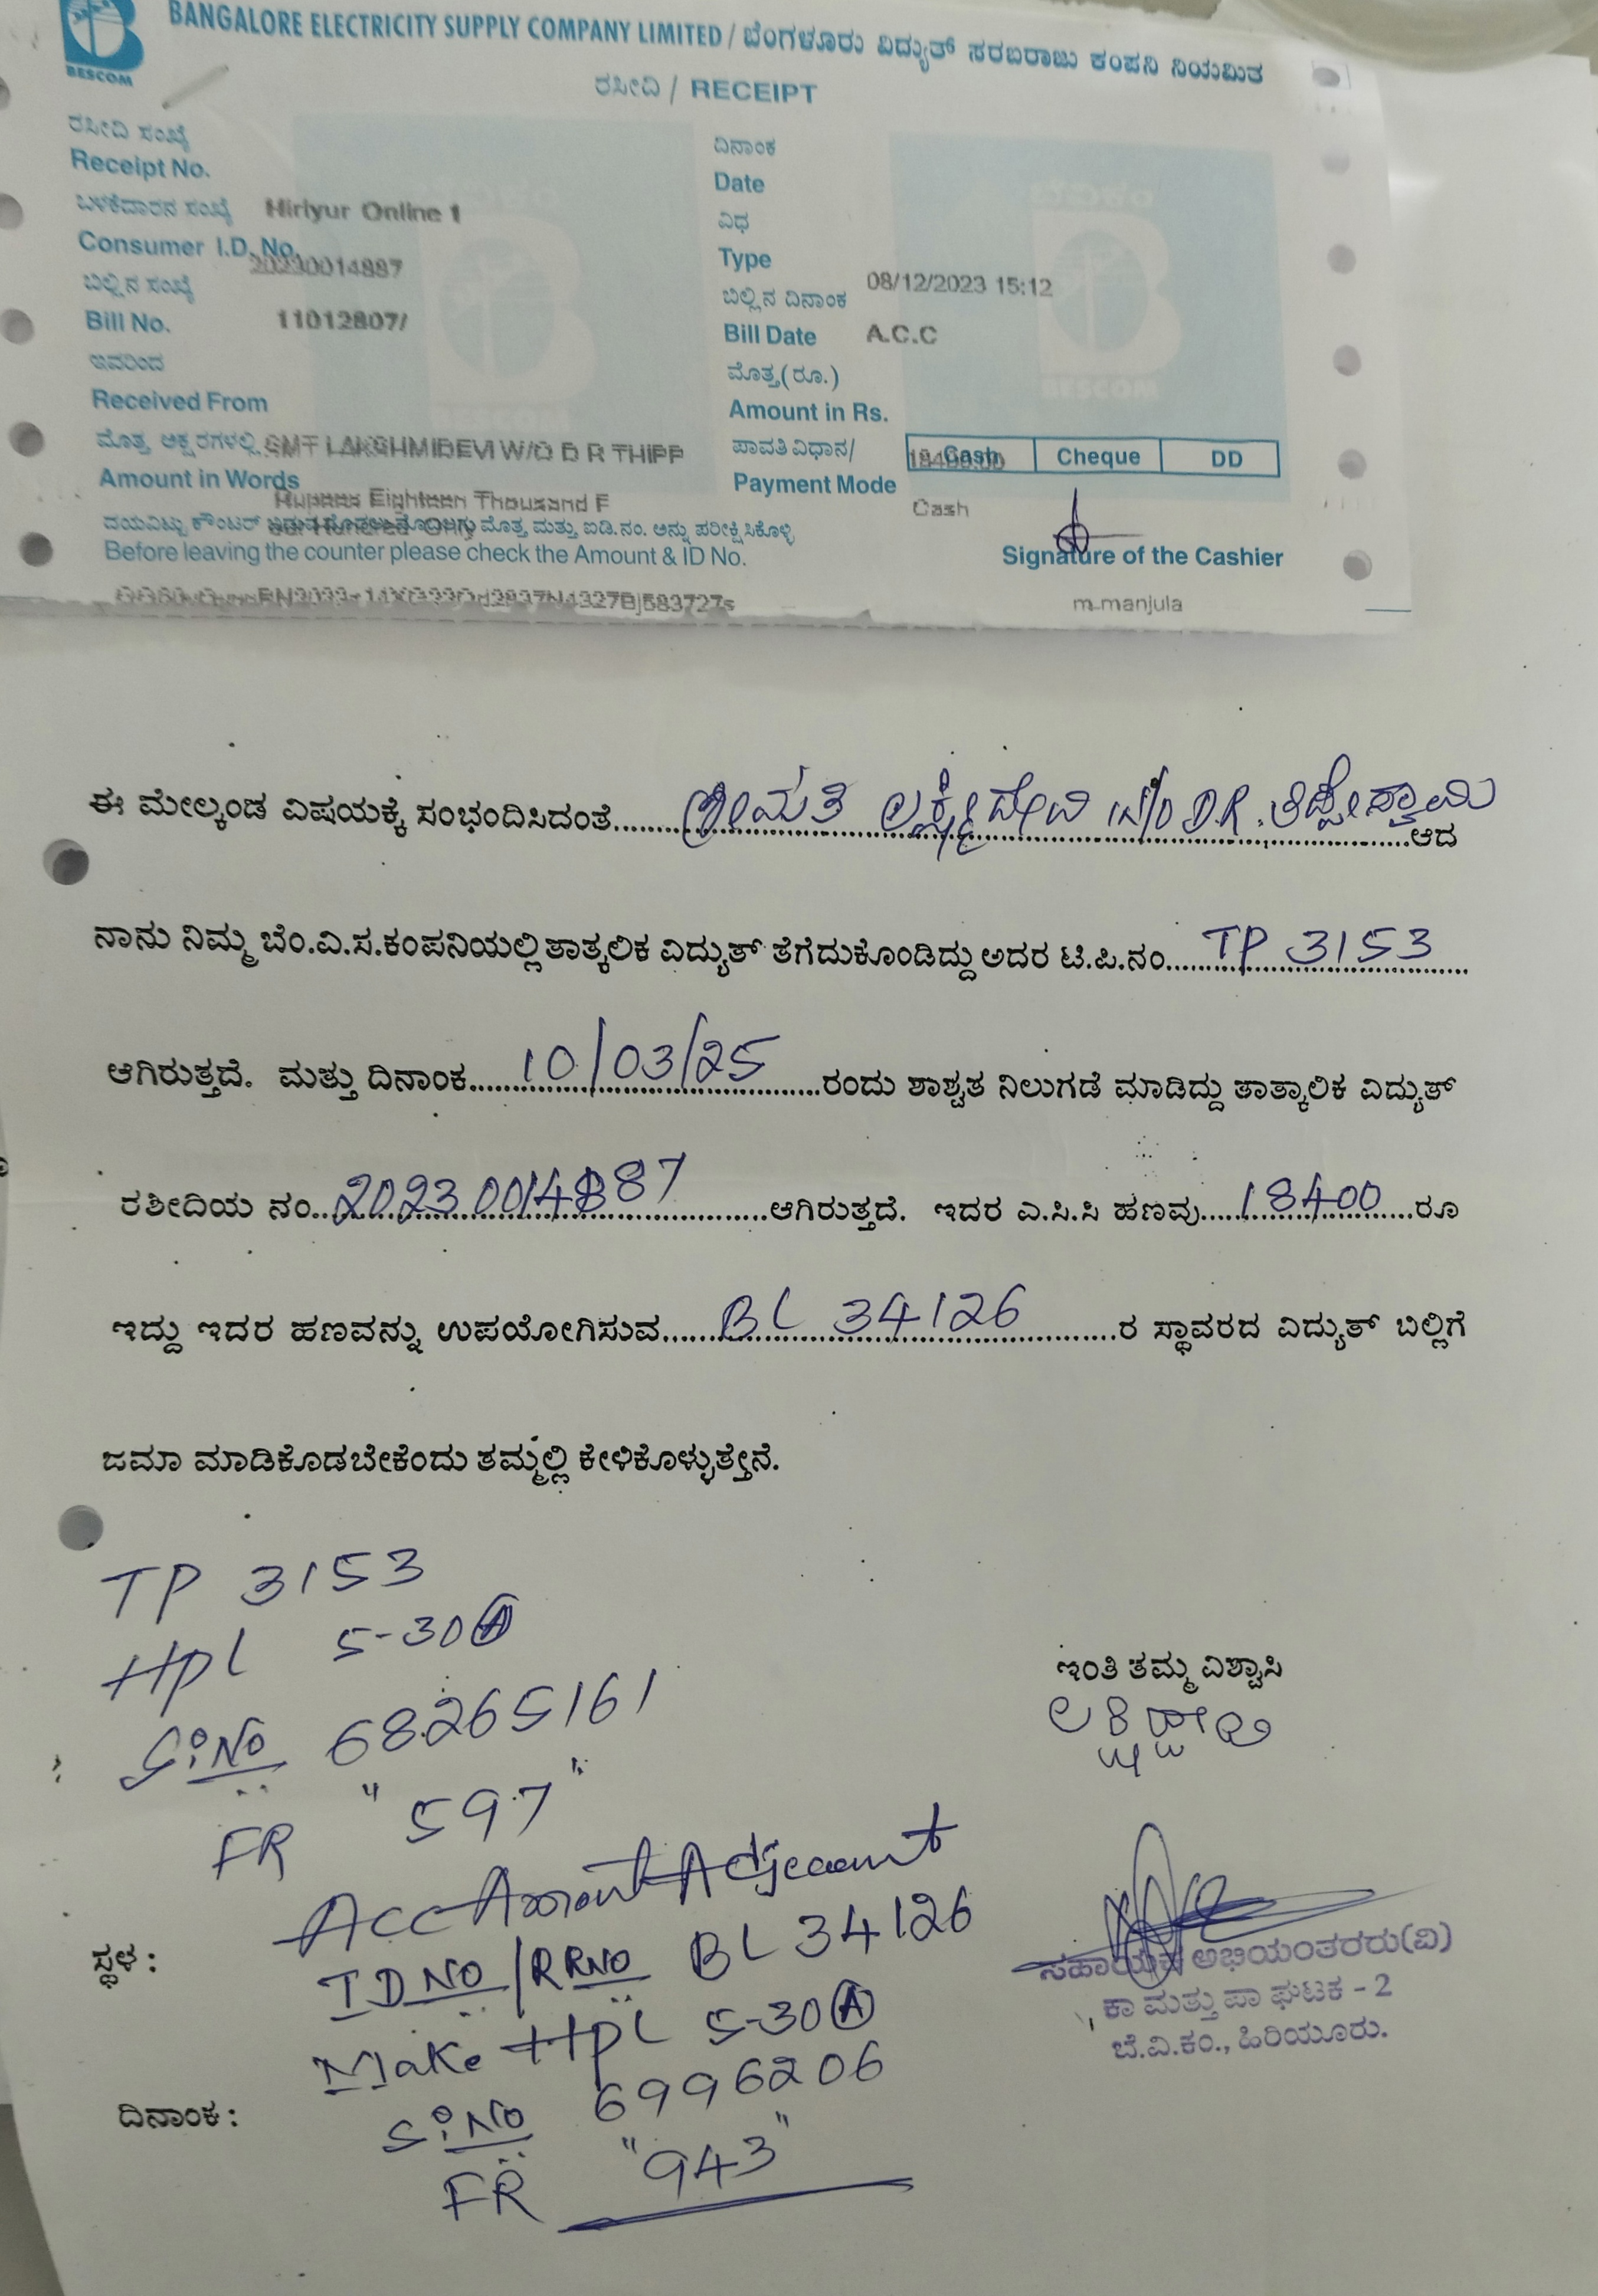 BANGALORE ELECTRICITY SUPPLY COMPANY LIMITED / ಬೆಂಗಳೂರು ವಿದ್ಯುತ್ ಸರಬರಾಜು ಕಂಪನಿ ನಿಯಮಿತ
BESCOM
ರಸೀದಿ / RECEIPT
ರಸೀದಿ ಸಂಖ್ಯೆ
Receipt No.
ಬಳಕೆದಾರನ ಸಂಖ್ಯೆ Hiriyur Online 1
Consumer I.D. No.
20230014887
ಬಿಲ್ಲಿನ ಸಂಖ್ಯೆ
Bill No. 11012807/
ಇವರಿಂದ
Received From
ಮೊತ್ತ ಅಕ್ಷರಗಳಲ್ಲಿ SMT LAKSHMIDEVI W/O D R THIPP
Amount in Words
Rupees Eighteen Thousand F
our Hundred Only
ದಯವಿಟ್ಟು ಕೌಂಟರ್ ಬಿಡುವ ಮೊದಲು ಮೊತ್ತ ಮತ್ತು ಐಡಿ.ನಂ. ಅನ್ನು ಪರೀಕ್ಷಿಸಿಕೊಳ್ಳಿ
Before leaving the counter please check the Amount & ID No.
ದಿನಾಂಕ
Date
ವಿಧ
Type
08/12/2023 15:12
ಬಿಲ್ಲಿನ ದಿನಾಂಕ
Bill Date A.C.C
ಮೊತ್ತ(ರೂ.)
Amount in Rs.
18400.00
ಪಾವತಿ ವಿಧಾನ/ Cash Cheque DD
Payment Mode Cash
Signature of the Cashier
m.manjula
ಈ ಮೇಲ್ಕಂಡ ವಿಷಯಕ್ಕೆ ಸಂಭಂದಿಸಿದಂತೆ......ಶ್ರೀಮತಿ ಲಕ್ಷ್ಮೀದೇವಿ W/O D.R. ತಿಪ್ಪೇಸ್ವಾಮಿ......ಆದ
ನಾನು ನಿಮ್ಮ ಬೆಂ.ವಿ.ಸ.ಕಂಪನಿಯಲ್ಲಿ ತಾತ್ಕಲಿಕ ವಿದ್ಯುತ್ ತೆಗೆದುಕೊಂಡಿದ್ದು ಅದರ ಟಿ.ಪಿ.ನಂ......TP 3153......
ಆಗಿರುತ್ತದೆ. ಮತ್ತು ದಿನಾಂಕ......10/03/25......ರಂದು ಶಾಶ್ವತ ನಿಲುಗಡೆ ಮಾಡಿದ್ದು ತಾತ್ಕಾಲಿಕ ವಿದ್ಯುತ್
ರಶೀದಿಯ ನಂ......20230014887......ಆಗಿರುತ್ತದೆ. ಇದರ ಎ.ಸಿ.ಸಿ ಹಣವು......18400......ರೂ
ಇದ್ದು ಇದರ ಹಣವನ್ನು ಉಪಯೋಗಿಸುವ......BL 34126......ರ ಸ್ಥಾವರದ ವಿದ್ಯುತ್ ಬಿಲ್ಲಿಗೆ
ಜಮಾ ಮಾಡಿಕೊಡಬೇಕೆಂದು ತಮ್ಮಲ್ಲಿ ಕೇಳಿಕೊಳ್ಳುತ್ತೇನೆ.
TP 3153
HPL 5-30 A
S.NO 68265161
FR "597"
ಇಂತಿ ತಮ್ಮ ವಿಶ್ವಾಸಿ
Acc Amount
IDNO/RRNO BL 34126
Make HPL 5-30 A
S.NO 6996206
FR "943"
ಸ್ಥಳ :
ದಿನಾಂಕ :
ಸಹಾಯಕ ಅಭಿಯಂತರರು(ವಿ)
ಕಾ ಮತ್ತು ಪಾ ಘಟಕ - 2
ಬೆ.ವಿ.ಕಂ., ಹಿರಿಯೂರು.